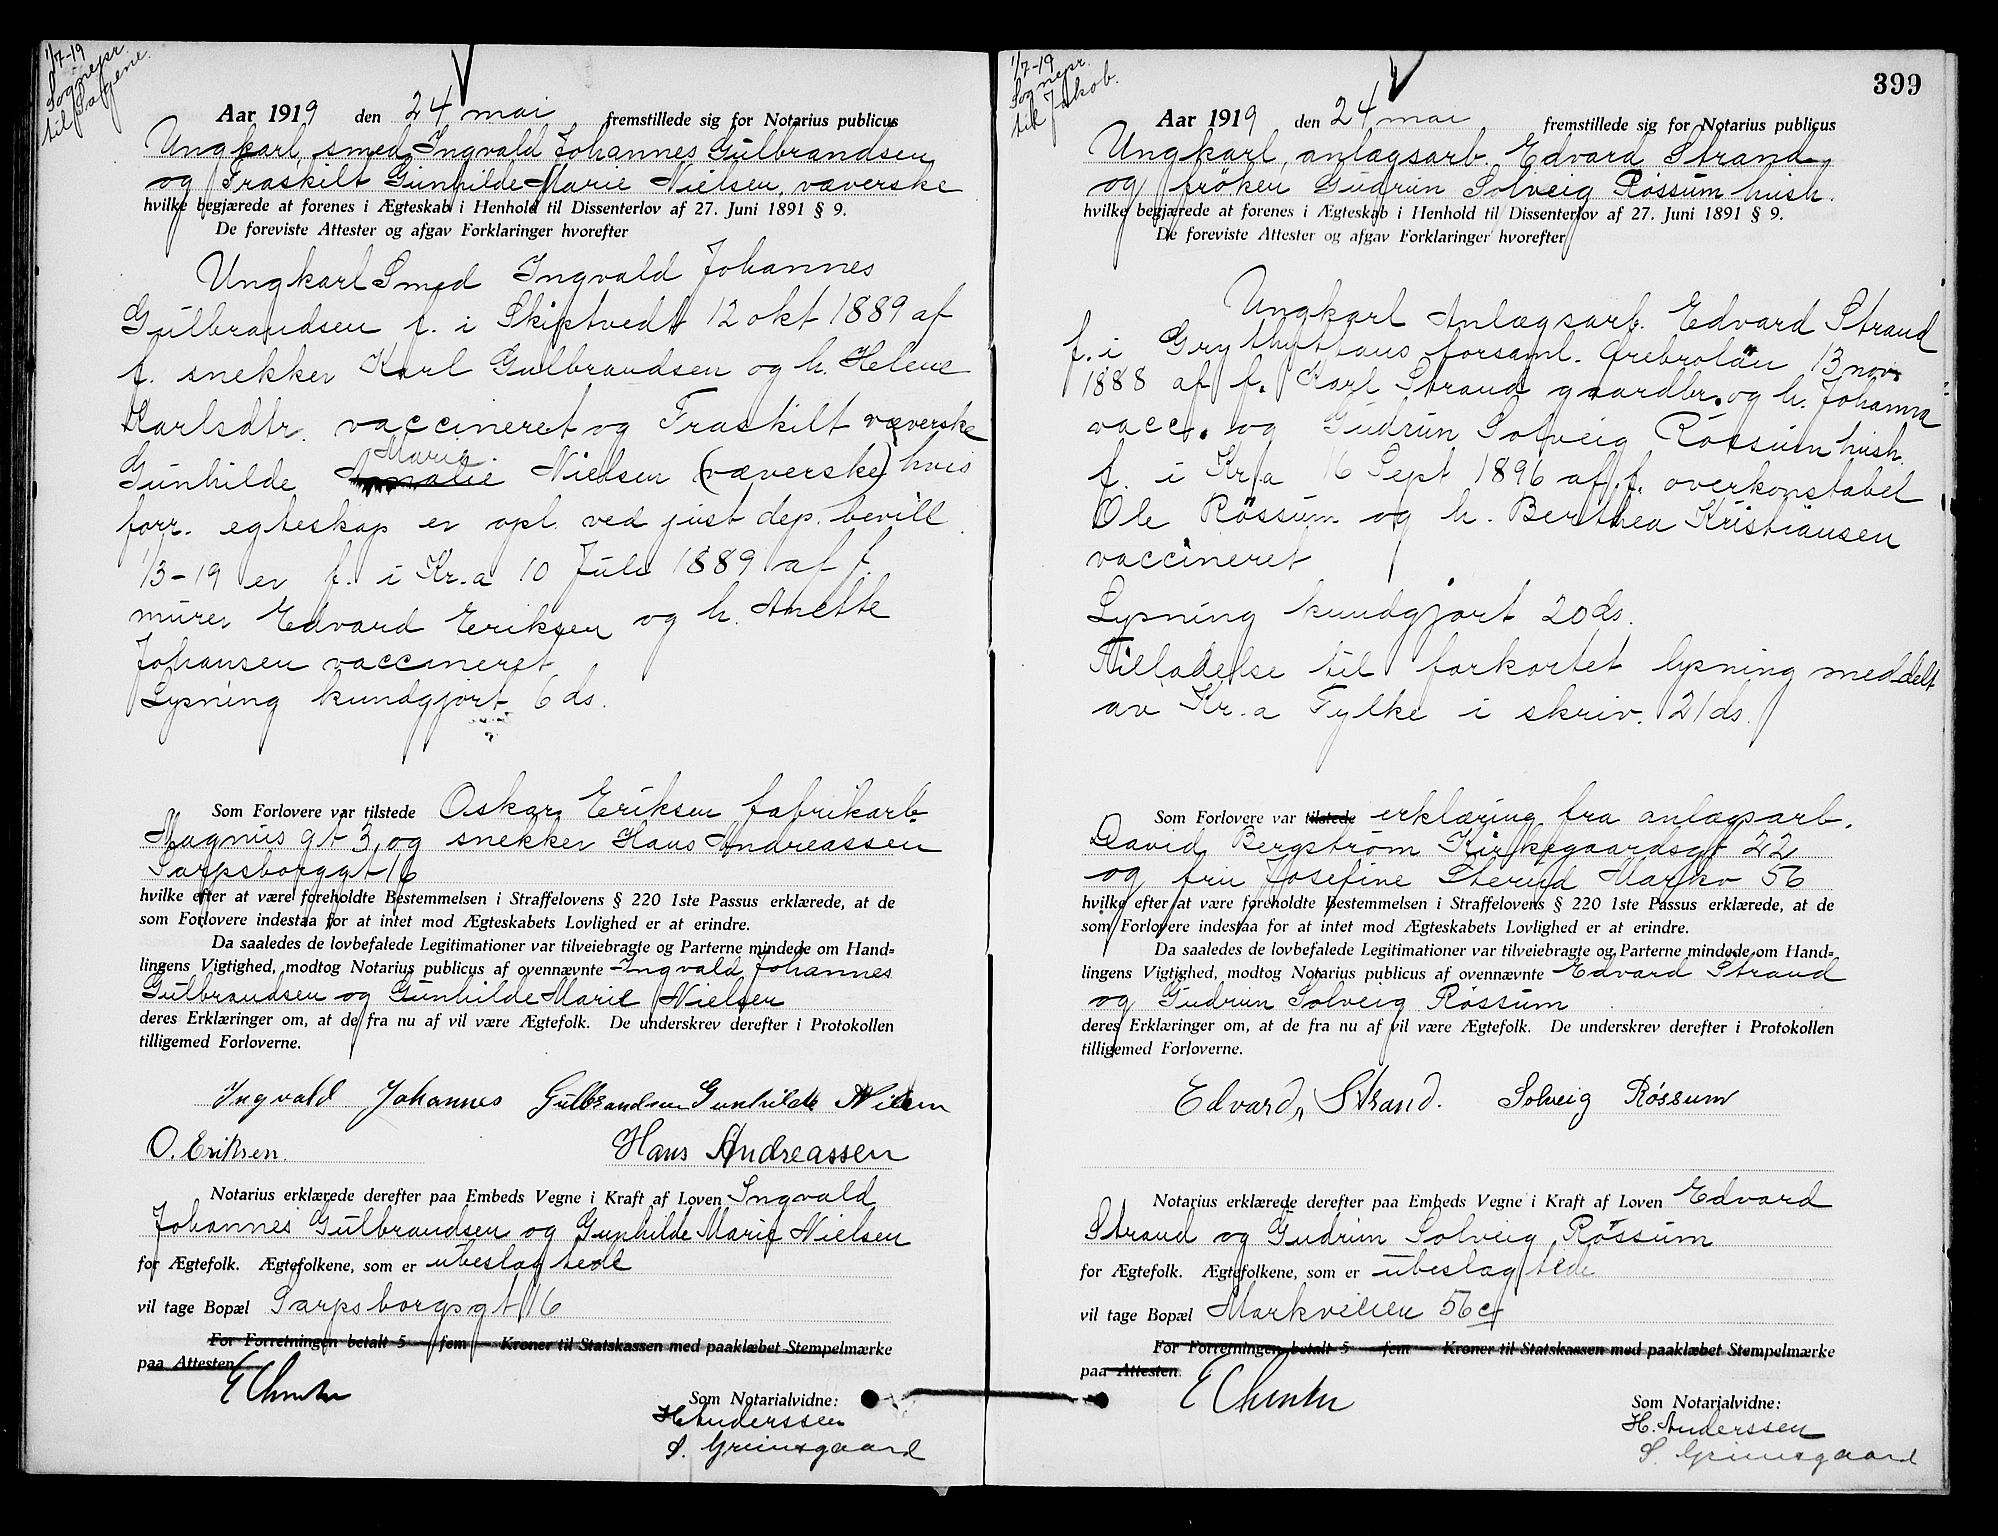 1/7-19
Sognepr.
til Sagene.
Aar 1919 den 24 mai fremstillede sig for Notarius publicus
Ungkarl, smed Ingvald Johannes Gulbrandsen
og Fraskilt Gunhilde Marie Nielsen, væverske
hvilke begjærede at forenes i Ægteskab i Henhold til Dissenterlov af 27. Juni 1891 § 9.
De foreviste Attester og afgav Forklaringer hvorefter
Ungkarl Smed Ingvald Johannes
Gulbrandsen f. i Skiptvedt 12 okt 1889 af
f. snekker Karl Gulbrandsen og h. Helene
Karlsdtr. vaccineret og Fraskilt væverske
Gunhilde Marie Nielsen (væverske) hvis
forr. egteskap er opl. ved just. dep. bevill
1/3-19 er f. i Kr.a 10 Juli 1889 af f.
murer Edvard Eriksen og h. Anette
Johansen vaccineret
Lysning kundgjort 6 ds.
Som Forlovere var tilstede Oskar Eriksen fabrikarb
Magnus gt 3 og snekker Hans Andreassen
Sarpsborggt 16
hvilke efter at være foreholdte Bestemmelsen i Straffelovens § 220 1ste Passus erklærede, at de
som Forlovere indestaa for at intet mod Ægteskabets Lovlighed er at erindre.
Da saaledes de lovbefalede Legitimationer var tilveiebragte og Parterne mindede om Hand-
lingens Vigtighed, modtog Notarius publicus af ovennævnte Ingvald Johannes
Gulbrandsen og Gunhilde Marie Nielsen
deres Erklæringer om, at de fra nu af vil være Ægtefolk. De underskrev derefter i Protokollen
tilligemed Forloverne.
Ingvald Johannes Gulbrandsen Gunhilde Nilsen
O. Eriksen. Hans Andreassen
Notarius erklærede derefter paa Embeds Vegne i Kraft af Loven Ingvald
Johannes Gulbrandsen og Gunhilde Marie Nielsen
for Ægtefolk. Ægtefolkene, som er ubeslagtede
vil tage Bopæl Sarpsborgsgt 16
For Forretningen betalt 5 fem Kroner til Statskassen med paaklæbet Stempelmærke
paa Attesten
Som Notarialvidne:
H. Anderssen
S. Grimsgaard
399
1/7-19
Sognepr.
til Jakob.
Aar 1919 den 24 mai fremstillede sig for Notarius publicus
Ungkarl, anlagsarb. Edvard Strand
og frøken Gudrun Solveig Røssum hush.
hvilke begjærede at forenes i Ægteskab i Henhold til Dissenterlov af 27. Juni 1891 § 9.
De foreviste Attester og afgav Forklaringer hvorefter
Ungkarl Anlægsarb. Edvard Strand
f. i Grythyttans forsaml. Ørebrolän 13 nov
1888 af f. Karl Strand gaardbr. og h. Johanna
vacc. og Gudrun Solveig Røssum hush.
f. i Kr.a 16 Sept 1896 af f. overkonstabel
Ole Røssum og h. Berthea Kristiansen
vaccineret
Lysning kundgjort 20 ds.
Tilladelse til forkortet lysning meddelt
av Kr.a Fylke i skriv. 21 ds.
Som Forlovere var tilstede erklæring fra anlagsarb.
David Bergstrøm Kirkegaardsgt 22
og fru Josefine Sterud Markv 56
hvilke efter at være foreholdte Bestemmelsen i Straffelovens § 220 1ste Passus erklærede, at de
som Forlovere indestaa for at intet mod Ægteskabets Lovlighed er at erindre.
Da saaledes de lovbefalede Legitimationer var tilveiebragte og Parterne mindede om Hand-
lingens Vigtighed, modtog Notarius publicus af ovennævnte Edvard Strand
og Gudrun Solveig Røssum
deres Erklæringer om, at de fra nu af vil være Ægtefolk. De underskrev derefter i Protokollen
tilligemed Forloverne.
Edvard Strand. Solveig Røssum
Notarius erklærede derefter paa Embeds Vegne i Kraft af Loven Edvard
Strand og Gudrun Solveig Røssum
for Ægtefolk. Ægtefolkene, som er ubeslagtede
vil tage Bopæl Markveien 56c
For Forretningen betalt 5 fem Kroner til Statskassen med paaklæbet Stempelmærke
paa Attesten.
Som Notarialvidne:
H. Anderssen
S. Grimsgaard